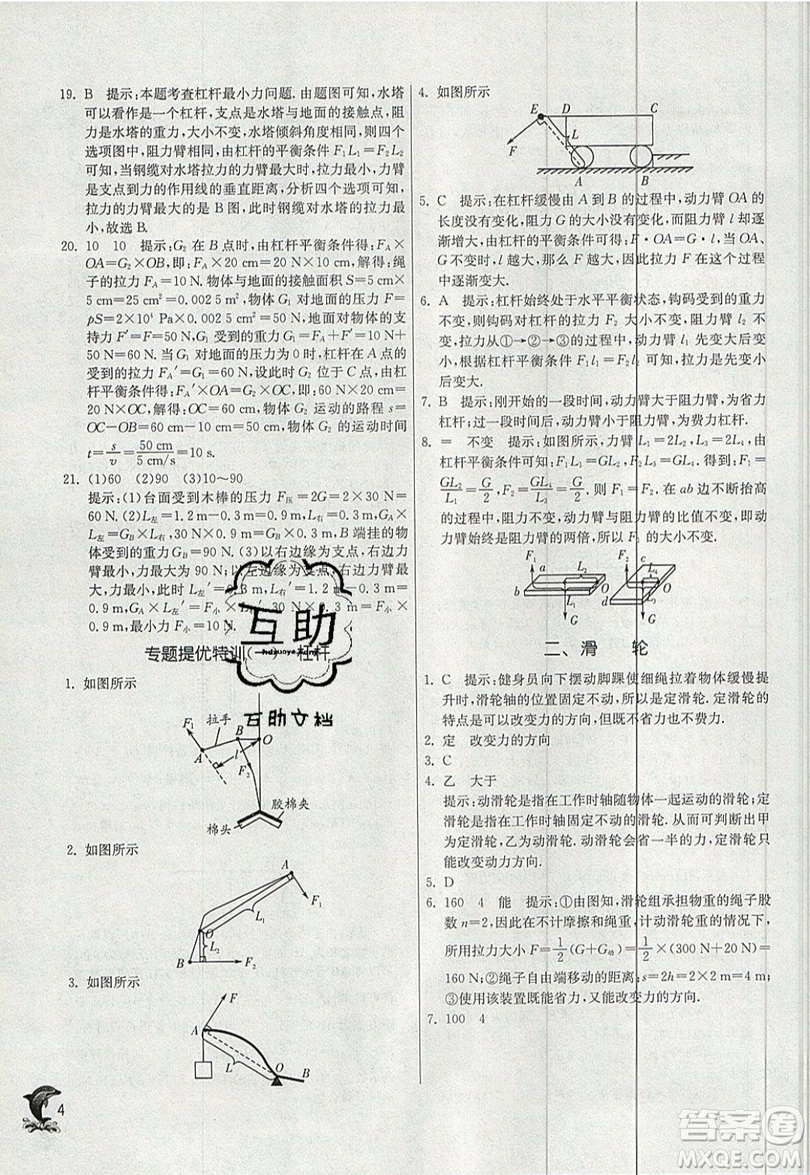 19. B 提示:本题考查杠杆最小力问题. 由题图可知,水塔
可以看作是一个杠杆,支点是水塔与地面的接触点,阻
力是水塔的重力,大小不变,水塔倾斜角度相同,则四个
选项图中,阻力臂相同,由杠杆的平衡条件 F₁L₁=F₂L₂
可知,当钢缆对水塔拉力的力臂最大时,拉力最小,力
臂是支点到力的作用线的垂直距离,分析四个选项图,
拉力的力臂最大的是 B 图,此时钢缆对水塔的拉力最
小,故选 B.
20. 10 10 提示:G₂ 在 B 点时,由杠杆平衡条件得:F_A×
OA=G₂×OB,即:F_A×10 cm=20 N×5 cm,解得:绳
子的拉力 F_A=10 N. 物体与地面的接触面积 S=5 cm×
5 cm=25 cm²=0.002 5 m²,物体 G₁ 对地面的压力 F=
pS=2×10⁴ Pa×0.002 5 m²=50 N,因为地面的支持
力 F′=F=50 N,G₁ 受到的重力 G₁=F_A+F′=10 N+
50 N=60 N;当 G₁ 对地面的压力为 0 时,杠杆在 A 点的
受到的拉力 F_A′=G₁=60 N,设此时 G₂ 位于 C 点,由杠
杆平衡条件得:F_A′×OA=G₂×OC,即:60 N×10 cm=
20 N×OC,解得:OC=60 cm,物体 G₂ 运动的路程 s=
OC-OB=60 cm-10 cm=50 cm,物体 G₂ 的运动时间
t=s/v=50 cm/5 cm/s=10 s.
21. (1)60 (2)90 (3)10~90
提示:(1)台面受到木棒的压力 F压=2G=2×30 N=
60 N. (2)L左=1.2 m-0.3 m=0.9 m,L右=0.3 m,G_A×
L左=G_B×L右,30 N×0.9 m=G_B×0.3 m,B 端挂的物
体的重力 G_B=90 N. (3)以右边缘为支点,右边力
臂最小,力最大为 90 N;以左边缘为支点,右边力臂最
大,力最小,L左′=0.3 m,L右′=1.2 m-0.3 m=
0.9 m,G_A×L左′=F小×L右′,30 N×0.3 m=F小×
0.9 m,最小力 F小=10 N.
专题提优特训(一) 杠杆
1. 如图所示
F₁ 拉手 B O A l F₂
胶棉夹
棉头
2. 如图所示
A F₁ L₁ O L₂ B F₂
3. 如图所示
F A L O B
4. 如图所示
E D C L F A B
5. C 提示:在杠杆缓慢由 A 到 B 的过程中,动力臂 OA 的
长度没有变化,阻力 G 的大小没有变化,而阻力臂 l 却逐
渐增大;由杠杆的平衡条件知:F·OA=G·l,当 OA、
G 不变时,l 越大,那么 F 越大,因此拉力 F 在这个过程
中逐渐变大.
6. A 提示:杠杆始终处于水平平衡状态,钩码的重力
不变,则钩码对杠杆的拉力 F₂ 不变,阻力臂 l₂ 不
变,拉力从①→②→③的过程中,动力臂 l₁ 先变大后变
小,根据杠杆平衡条件 F₁l₁=F₂l₂ 可知,拉力先变小
后变大.
7. B 提示:刚开始的一段时间,动力臂大于阻力臂,为省力
杠杆;过一段时间后,动力臂小于阻力臂,为费力杠杆.
8. = 不变 提示:如图所示,力臂 L₁=2L₂,L₃=2L₄,由
杠杆平衡条件可知,F₁L₁=GL₂,F₂L₃=GL₄. 得到:F₁=
GL₂/L₁=G/2,F₂=GL₄/L₃=G/2,所以,F₁=F₂. 在 ab 边不断抬高
的过程中,阻力不变,动力臂与阻力臂的比值不变,即动
力臂始终是阻力臂的两倍,所以 F₁ 的大小不变.
F₁ b a L₂ L₁ G F₂ c d L₄ L₃ G
二、滑 轮
1. C 提示:健身员向下摆动脚踝使细绳拉着物体缓慢提
升时,滑轮轴的位置固定不动,所以是定滑轮. 定滑轮的
特点是可以改变力的方向,但既不省力也不费力.
2. 定 改变力的方向
3. D
4. 乙 大于
提示:动滑轮是指在工作时轴随物体一起运动的滑轮;定
滑轮是指在工作时轴固定不动的滑轮. 可以判断出甲
为定滑轮,乙为动滑轮. 动滑轮会省一半的力,定滑轮只
能改变动力方向.
5. D
6. 160 4 能 提示:①由图知,滑轮组承担物重的绳子股
数 n=2,因此在不计摩擦和绳重,计动滑轮重的情况下,
所用拉力大小 F=1/2(G+G动)=1/2×(300 N+20 N)=
160 N;②绳子自由端移动的距离:s=2h=2×2 m=4 m;
③使用该装置既能省力,又能改变力的方向.
7. 100 4
4
互助
互助文档
答案圈
MXQE.COM